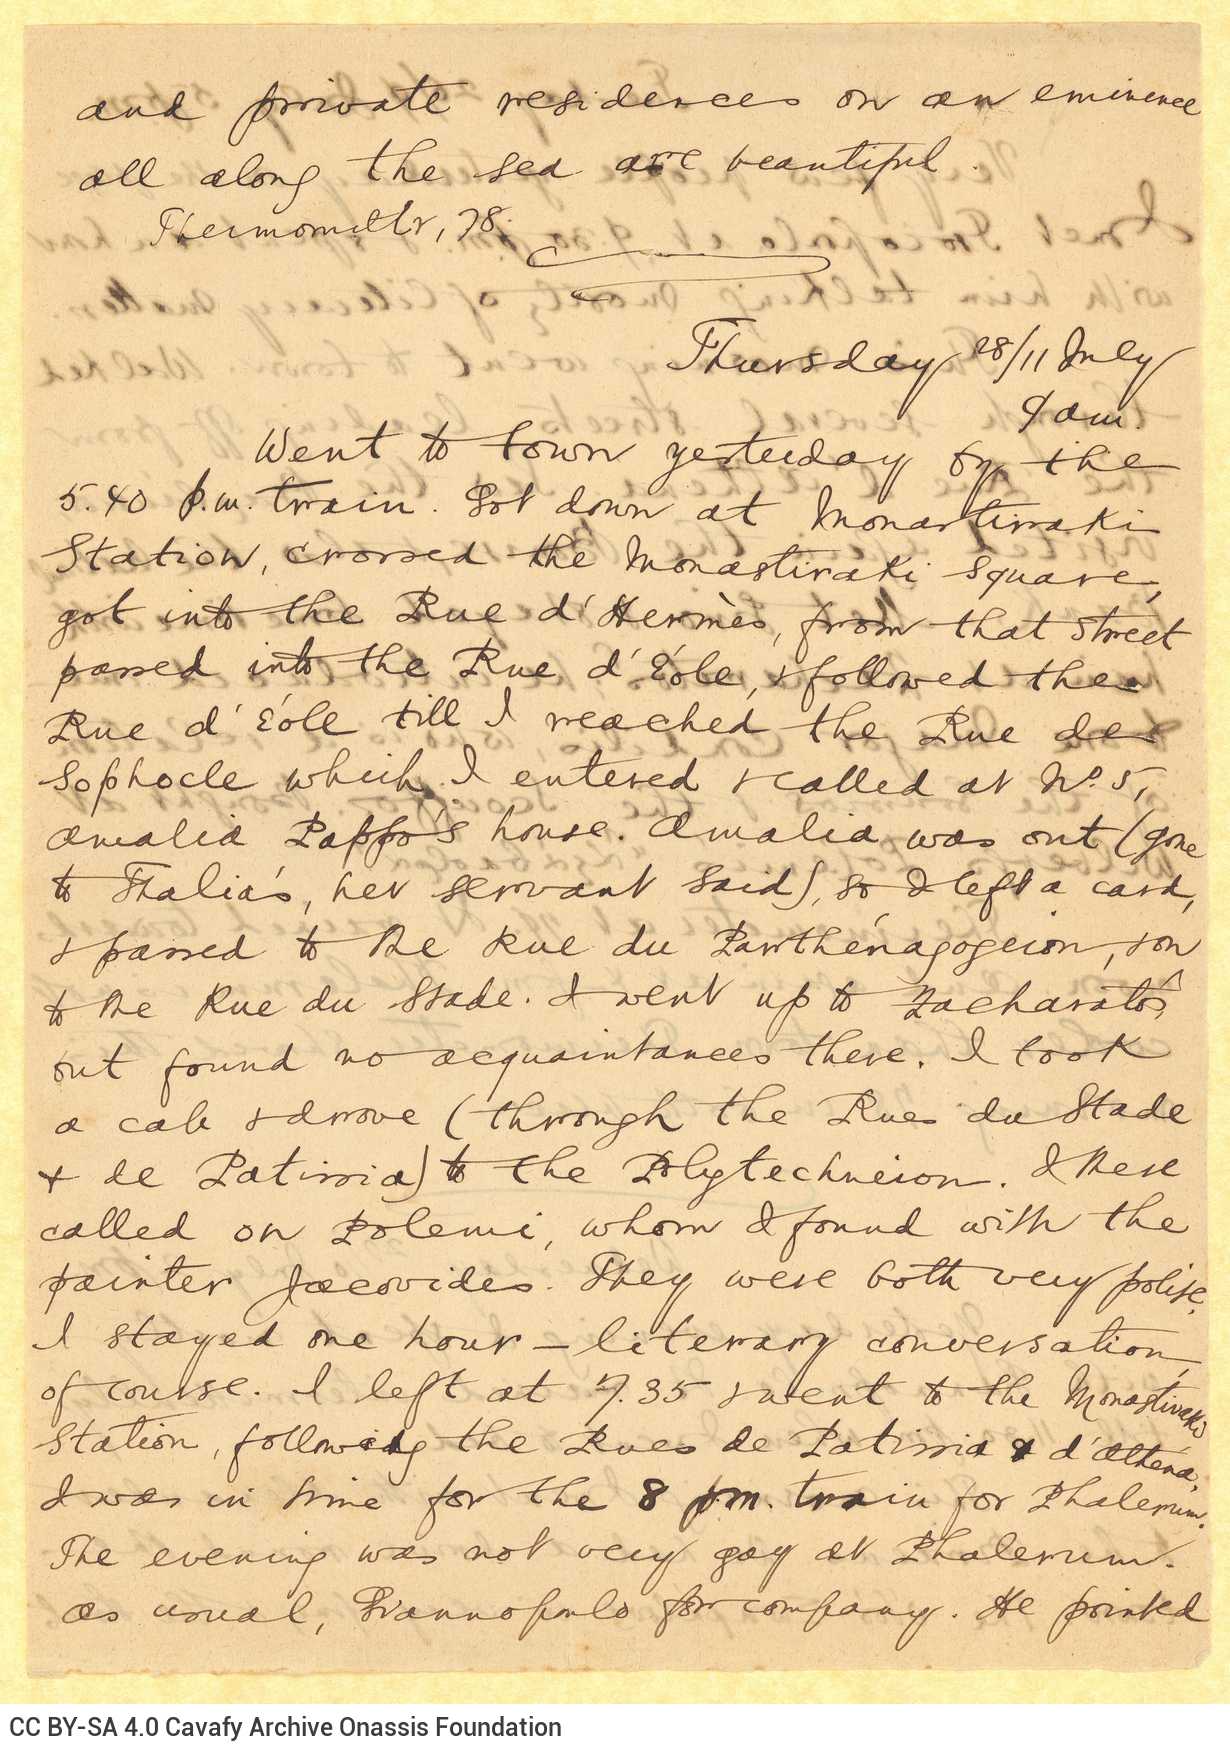 and private residences on an eminence
all along the sea are beautiful.
Thermometer, 78.
Thursday 28/11 July
9 am.
Went to town yesterday by the
5.40 p.m. train. Got down at Monastiraki
Station, crossed the Monastiraki square,
got into the Rue d'Hermès, from that street
passed into the Rue d'Éole, & followed the
Rue d'Éole till I reached the Rue de
Sophocle which I entered & called at No. 5,
Amalia Pappo's house. Amalia was out (gone
to Thalia's, her servant said), so I left a card,
& passed to the Rue du Parthénagogeion, & on
to the Rue du Stade. I went up to Zacharatos,
but found no acquaintances there. I took
a cab & drove (through the Rues du Stade
& de Patissia) to the Polytechneion. I there
called on Polemi, whom I found with the
painter Jacovides. They were both very polite.
I stayed one hour – literary conversation,
of course. I left at 7.35 & went to the Monastiraki
Station, following the Rues de Patissia & d'Athéna,
I was in time for the 8 p.m. train for Phalerum.
The evening was not very gay at Phalerum.
As usual, Giannopoulo for company. He pointed
CC BY-SA 4.0 Cavafy Archive Onassis Foundation